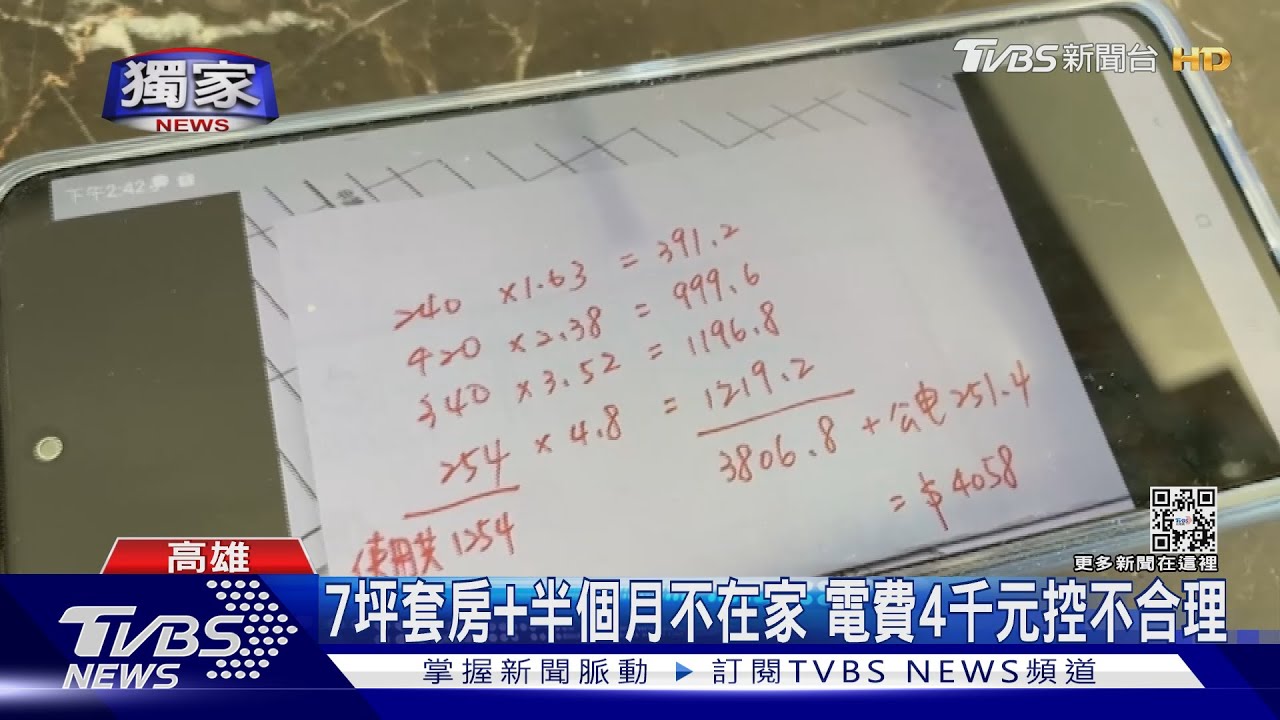 獨家
NEWS
TVBS新聞台 HD
下午2:42
240 ×1.63 = 391.2
420 ×2.38 = 999.6
340 ×3.52 = 1196.8
254 ×4.8 = 1219.2
3806.8 +公电251.4
= $4058
使用共1254
更多新聞在這裡
高雄
7坪套房+半個月不在家 電費4千元控不合理
TVBS
NEWS
掌握新聞脈動 ▶ 訂閱TVBS NEWS頻道